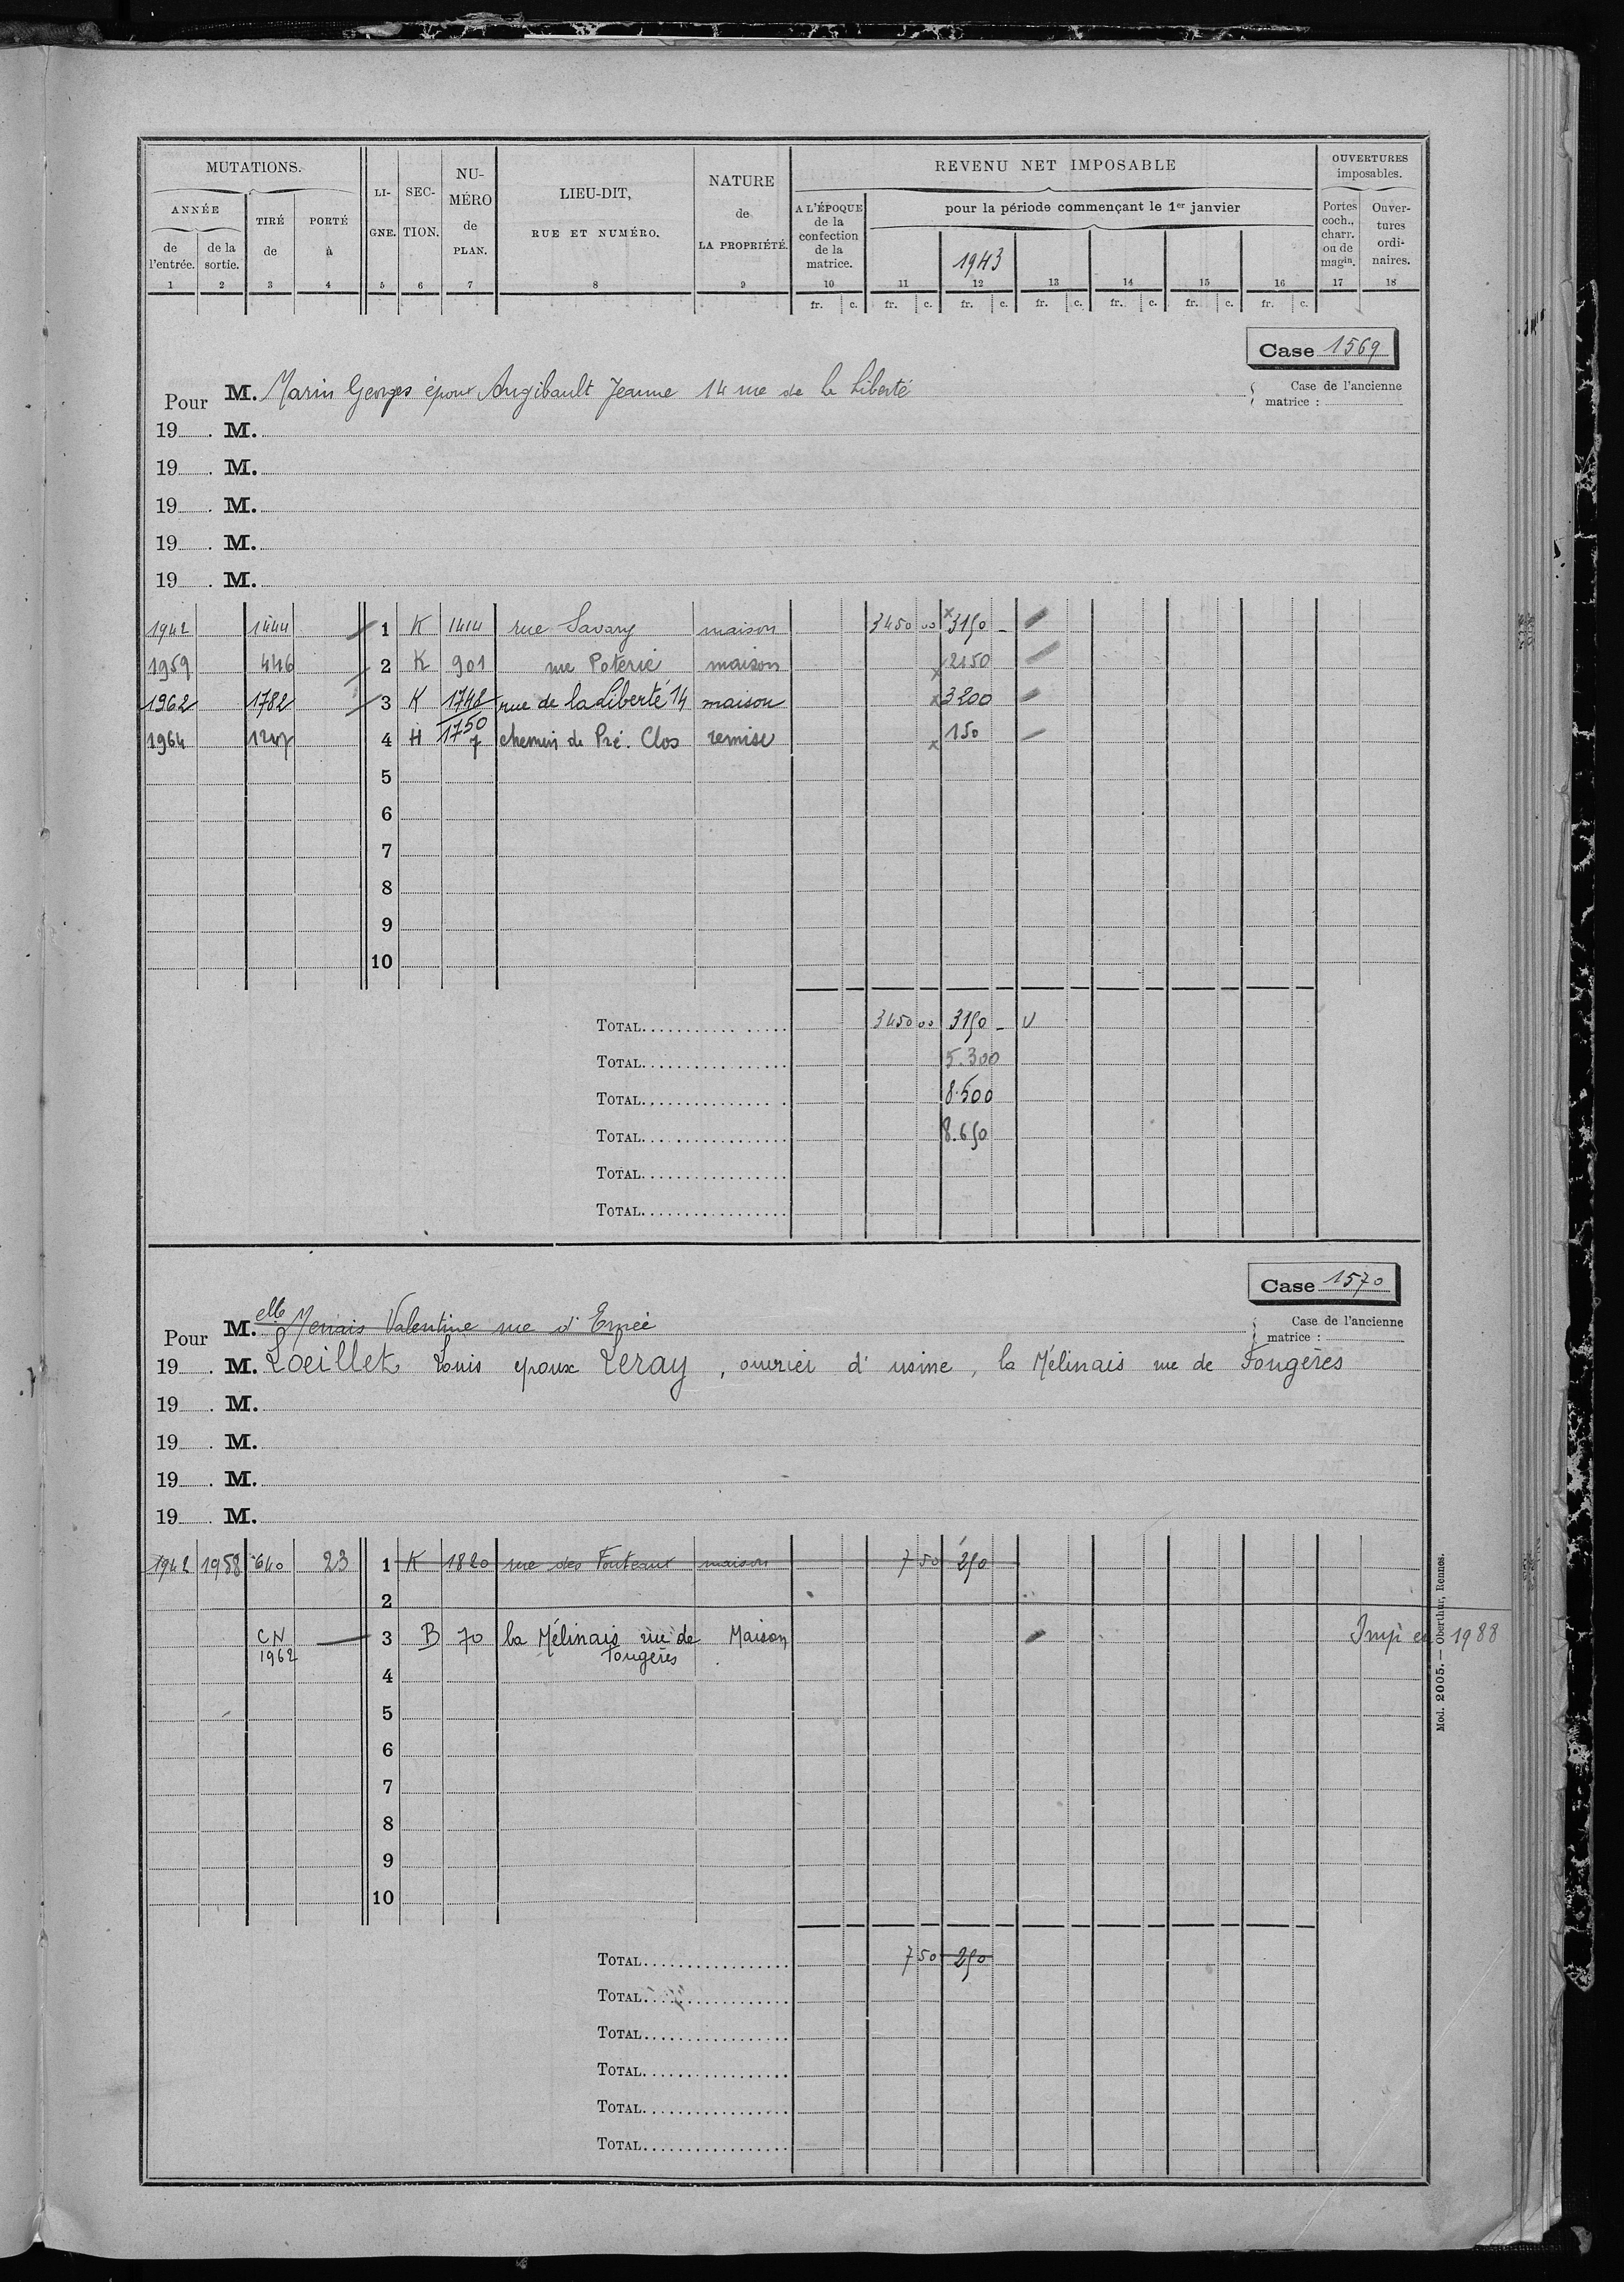 MUTATIONS.
ANNÉE
de l'entrée. de la sortie. TIRÉ de PORTÉ à
LI-GNE. SEC-TION. NU-MÉRO de PLAN.
LIEU-DIT, RUE ET NUMÉRO.
NATURE de LA PROPRIÉTÉ.
REVENU NET IMPOSABLE
A L'ÉPOQUE de la confection de la matrice.
pour la période commençant le 1er janvier
1943
OUVERTURES imposables.
Portes coch., charr. ou de magin. Ouver-tures ordi-naires.
1 2 3 4 5 6 7 8 9 10 11 12 13 14 15 16 17 18
fr. c. fr. c. fr. c. fr. c. fr. c. fr. c. fr. c.
Case 1569
Pour M. Marin Georges époux Angibault Jeanne 14 rue de la Liberté
Case de l'ancienne matrice :
19 . M.
19 . M.
19 . M.
19 . M.
19 . M.
1942 1444 1 K 1414 rue Savary maison 3450 00 x 3150 -
1959 446 2 K 901 rue Poterie maison x 2150
1962 1782 3 K 1748/1750 rue de la Liberté 14 maison x 3200
1964 4 H 7 chemin de Pré. Clos remise x 150
5
6
7
8
9
10
TOTAL 3450 00 3150 -
TOTAL 5.300
TOTAL 8.500
TOTAL 8.650
TOTAL
TOTAL
Case 1570
Pour M.elle Valentine rue d'Ernée
Case de l'ancienne matrice :
19 . M. Loeillet Louis epoux Leray, ouvrier d'usine, la Mélinais rue de Fougères
19 . M.
19 . M.
19 . M.
19 . M.
1942 1958 640 23 1 K 1820 rue des Fouteaux maison 7 50 250
2
CN 1962 3 B 70 la Mélinais rue de Fougères Maison Imp en 1988
4
5
6
7
8
9
10
TOTAL 7 50 250
TOTAL
TOTAL
TOTAL
TOTAL
TOTAL
Mod. 2005. — Oberthur, Rennes.